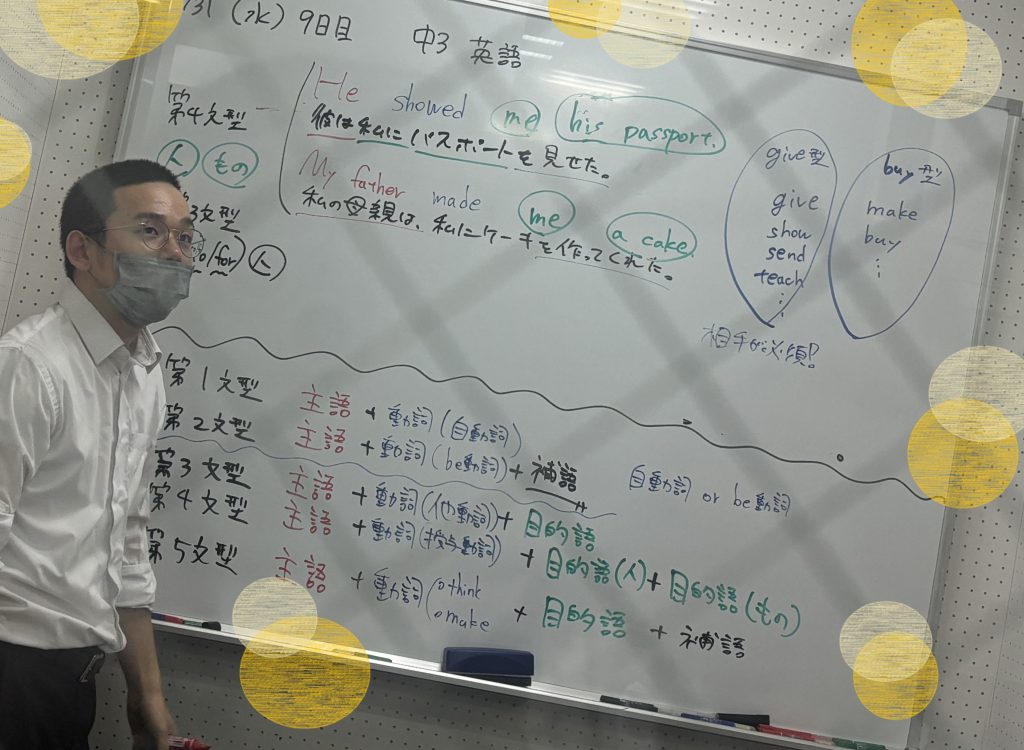 31 (水) 9日目 中3 英語
第4文型
人 もの
3文型
/for) 人
He showed me his passport.
彼は私にパスポートを見せた。
My father made me a cake.
私の母親は、私にケーキを作ってくれた。
give型
give
show
send
teach
⋮
buy型
make
buy
⋮
相手が必須!
第1文型 主語 + 動詞 (自動詞)
第2文型 主語 + 動詞 (be動詞) + 補語
自動詞 or be動詞
第3文型 主語 + 動詞 (他動詞) + 目的語
第4文型 主語 + 動詞 (授与動詞) + 目的語(人) + 目的語(もの)
第5文型 主語 + 動詞 (think make + 目的語 + 補語